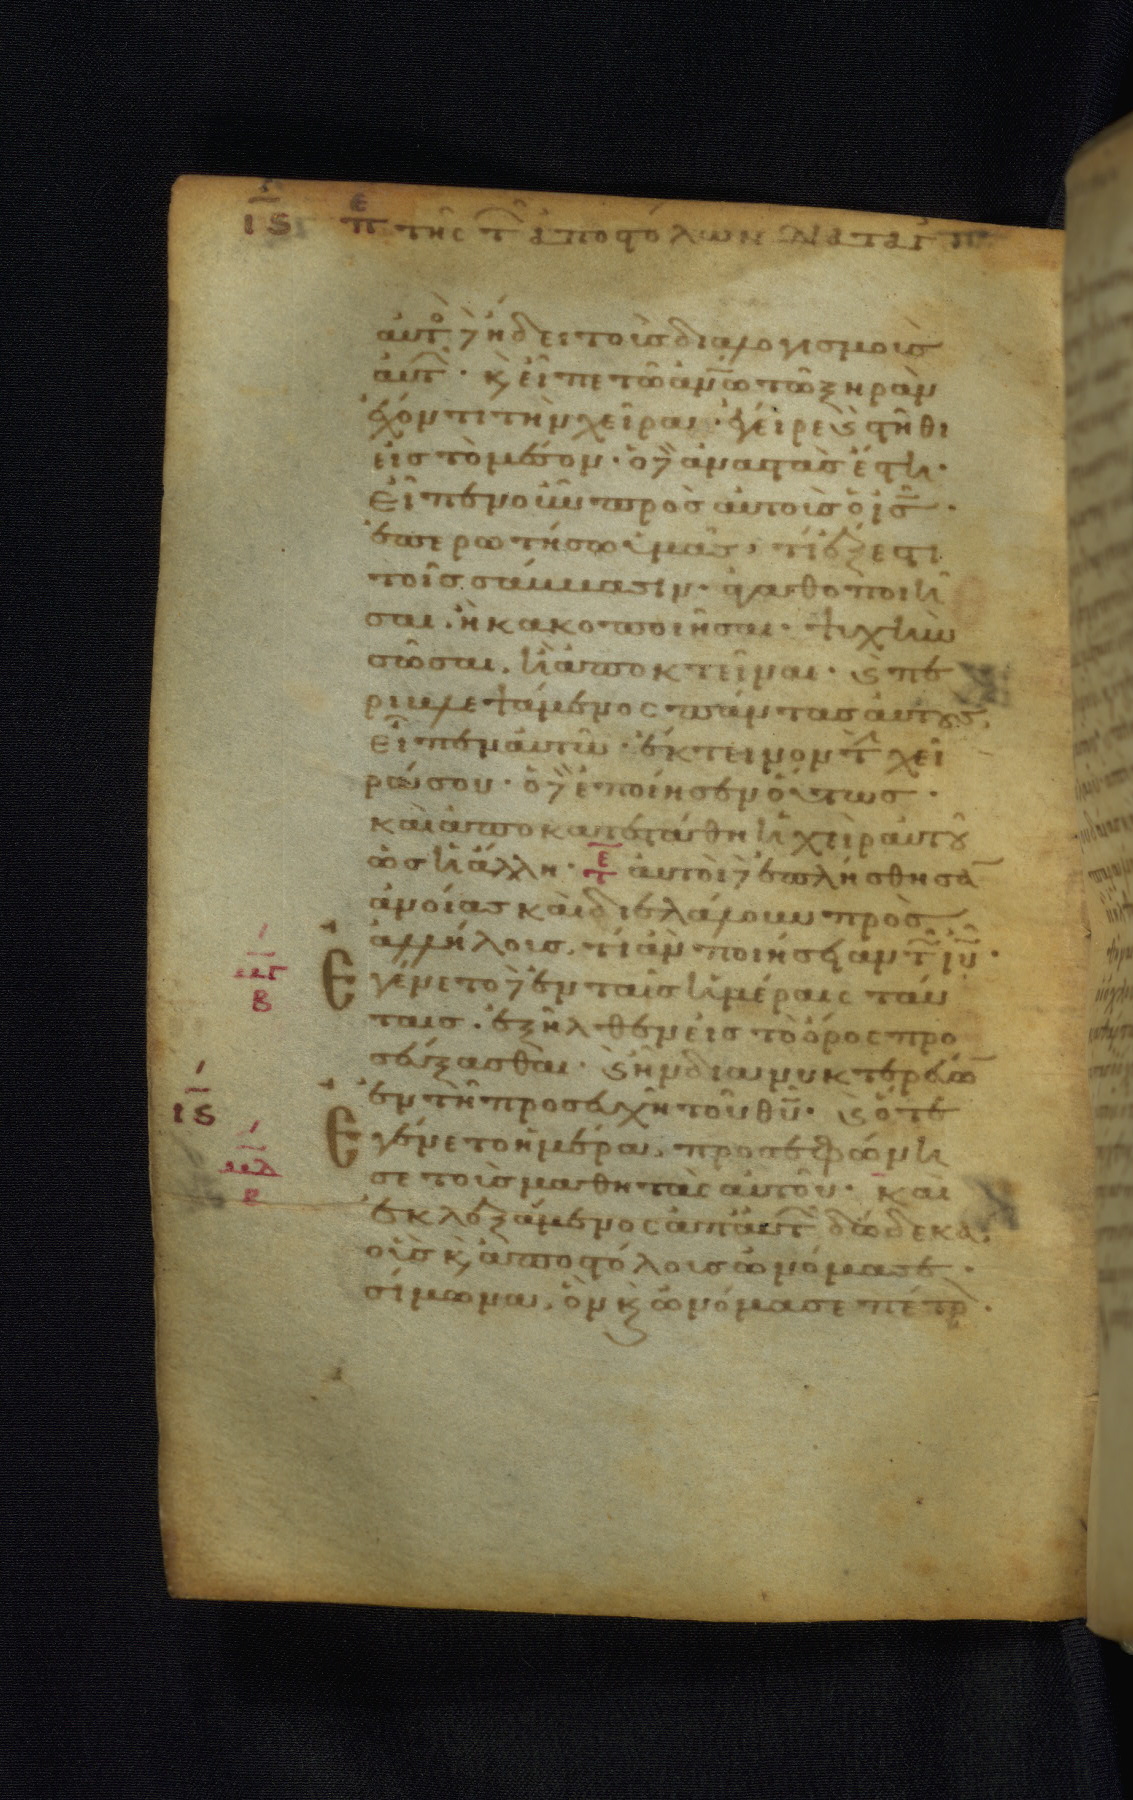 ις περὶ τῆς τῶν ἀποστόλων διαταγῆς
αὐτὸς δὲ ᾔδει τοὺς διαλογισμοὺς
αὐτῶν· κ̀ εἶπε τῶ ἀν̅ω̅ τῶ ξηρὰν
ἔχοντι τὴν χεῖρα· ἔγειρε κ̀ στῆθι
εἰς τὸ μέσον· ὁ δὲ ἀναστὰς ἔστη·
Εἶπεν οὖν πρὸς αὐτοὺς ὁ ι̅ς̅·
ἐπερωτήσω ὑμᾶς, τί ἔξεστι
τοῖς σάββασιν· ἀγαθοποιῆ
σαι ἢ κακοποιῆσαι· ψυχὴν
σῶσαι, ἢ ἀποκτεῖναι· κ̀ πε
ριβλεψάμενος πάντας αὐτούς,
εἶπεν αὐτῶ· ἔκτεινον τ̀ χεῖ
ρά σου· ὁ δὲ ἐποίησεν οὕτως·
καὶ ἀποκατεστάθη ἡ χεὶρ αὐτοῦ
ὡς ἡ ἄλλη· αὐτοὶ δὲ ἐπλήσθησα̅
ἀνοίας καὶ διελάλουν πρὸς
ἀλλήλους, τί ἂν ποιήσειαν τῶ ι̅υ̅·
μγ β Εγένετο δὲ ἐν ταῖς ἡμέραις ταύ
ταις· ἐξῆλθεν εἰς τὸ ὄρος προ
σεύξασθαι· κ̀ ἦν διανυκτερεύω̅
ις ἐν τῆ προσευχῆ τοῦ θ̅υ̅· κ̀ ὅτε
μδ β Εγένετο ἡμέρα, προσεφώνη
σε τοὺς μαθητὰς αὐτοῦ· καὶ
ἐκλεξάμενος ἀπ' αὐτῶν δώδεκα·
οὓς κ̀ ἀποστόλους ὠνόμασε·
σίμωνα, ὃν κ̀ ὠνόμασε πέτρ·